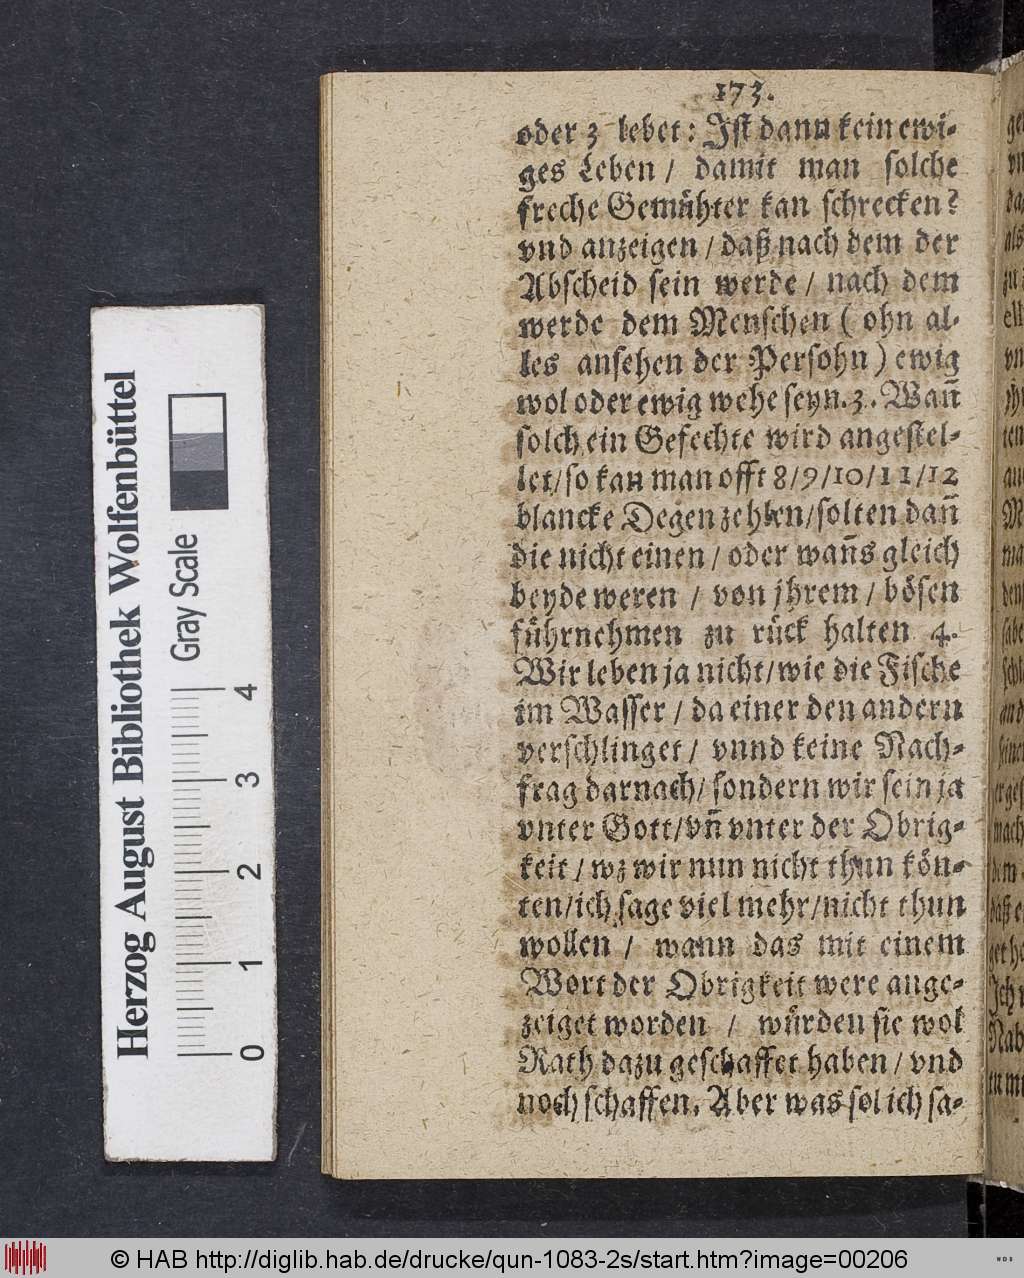 173.
oder 3 lebet: Jst dann kein ewi-
ges Leben / damit man solche
freche Gemühter kan schrecken?
vnd anzeigen / daß nach dem der
Abscheid sein werde / nach dem
werde dem Menschen ( ohn al-
les ansehen der Persohn ) ewig
wol oder ewig wehe seyn. 3. Wañ
solch ein Gefechte wird angestel-
let/ so kan man offt 8/9/10/11/12
blancke Degen zehlen/ solten dañ
die nicht einen / oder wañs gleich
beyde weren / von jhrem / bösen
führnehmen zu rück halten 4.
Wir leben ja nicht/ wie die Fische
im Wasser / da einer den andern
verschlinget / vnnd keine Nach-
frag darnach/ sondern wir sein ja
vnter Gott/ vñ vnter der Obrig-
keit / wz wir nun nicht thun kön-
ten/ ich sage viel mehr/ nicht thun
wollen / wann das mit einem
Wort der Obrigkeit were ange-
zeiget worden / würden sie wol
Rath dazu geschaffet haben / vnd
noch schaffen. Aber was sol ich sa-
Herzog August Bibliothek Wolfenbüttel
Gray Scale
0 1 2 3 4
© HAB http://diglib.hab.de/drucke/qun-1083-2s/start.htm?image=00206